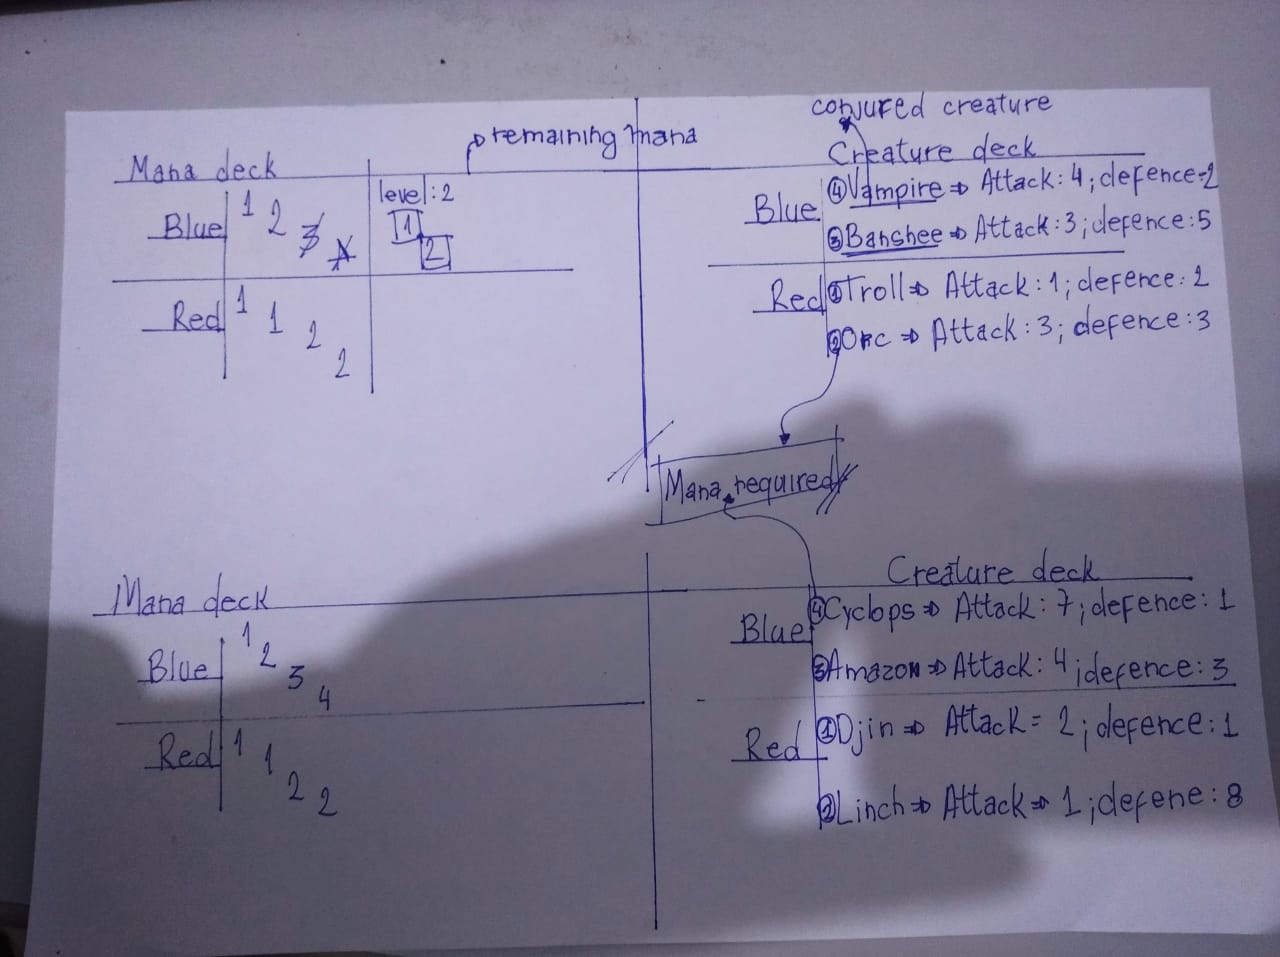 remaining mana
conjured creature
Mana deck
Blue 1 2 3 4
level: 2
1
2
Red 1 1 2 2
Creature deck
Blue
④Vampire ⇒ Attack: 4; defence-2
③Banshee ⇒ Attack: 3; defence: 5
Red
①Troll ⇒ Attack: 1; defence: 2
②Orc ⇒ Attack: 3; defence: 3
Mana required
Mana deck
Blue 1 2 3 4
Red 1 1 2 2
Creature deck
Blue
④Cyclops ⇒ Attack: 7; defence: 1
③Amazon ⇒ Attack: 4; defence: 3
Red
①Djin ⇒ Attack= 2; defence: 1
②Linch ⇒ Attack ⇒ 1; defene: 8